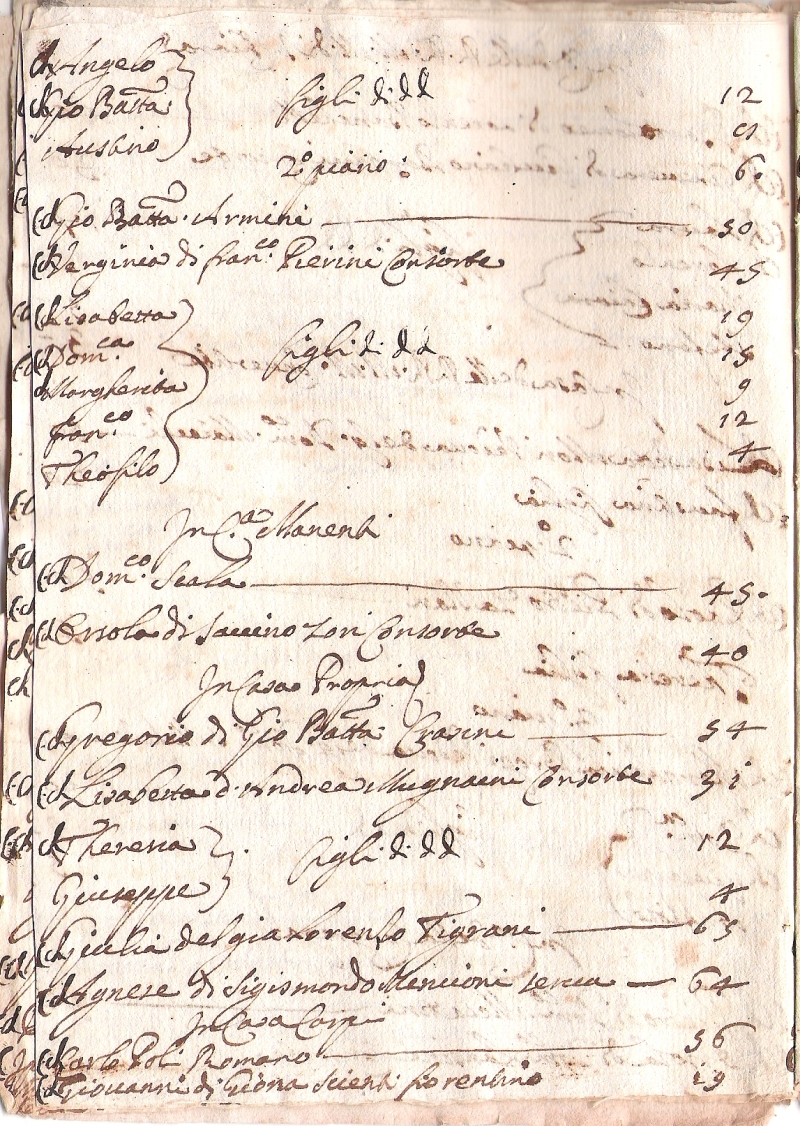 Angelo 12
Gio Batta figli di dd 9
Austino 6
2.º piano:
Gio Batta Armini 50
Verginia di fran.co Pierini Consorte 45
Lisabetta 19
Dom.ca figli di dd 15
Margherita 9
fran.co 12
Theofilo 4
In C.a Manenti
Dom.co Scala 45
Orsola di Consorte 40
In Casa Propria
Gregorio di Gio Batta 54
Lisabetta d. Andrea Mugnaini Consorte 31
Theresia figli di dd 12
Giuseppe 4
Giulia del gia Lorenzo Tigrani 65
Agnese di Sigismondo Mencioni serva 64
In Casa Carpi
Carlo Poli Romano 56
Giovanni di Giona fiorentino 19